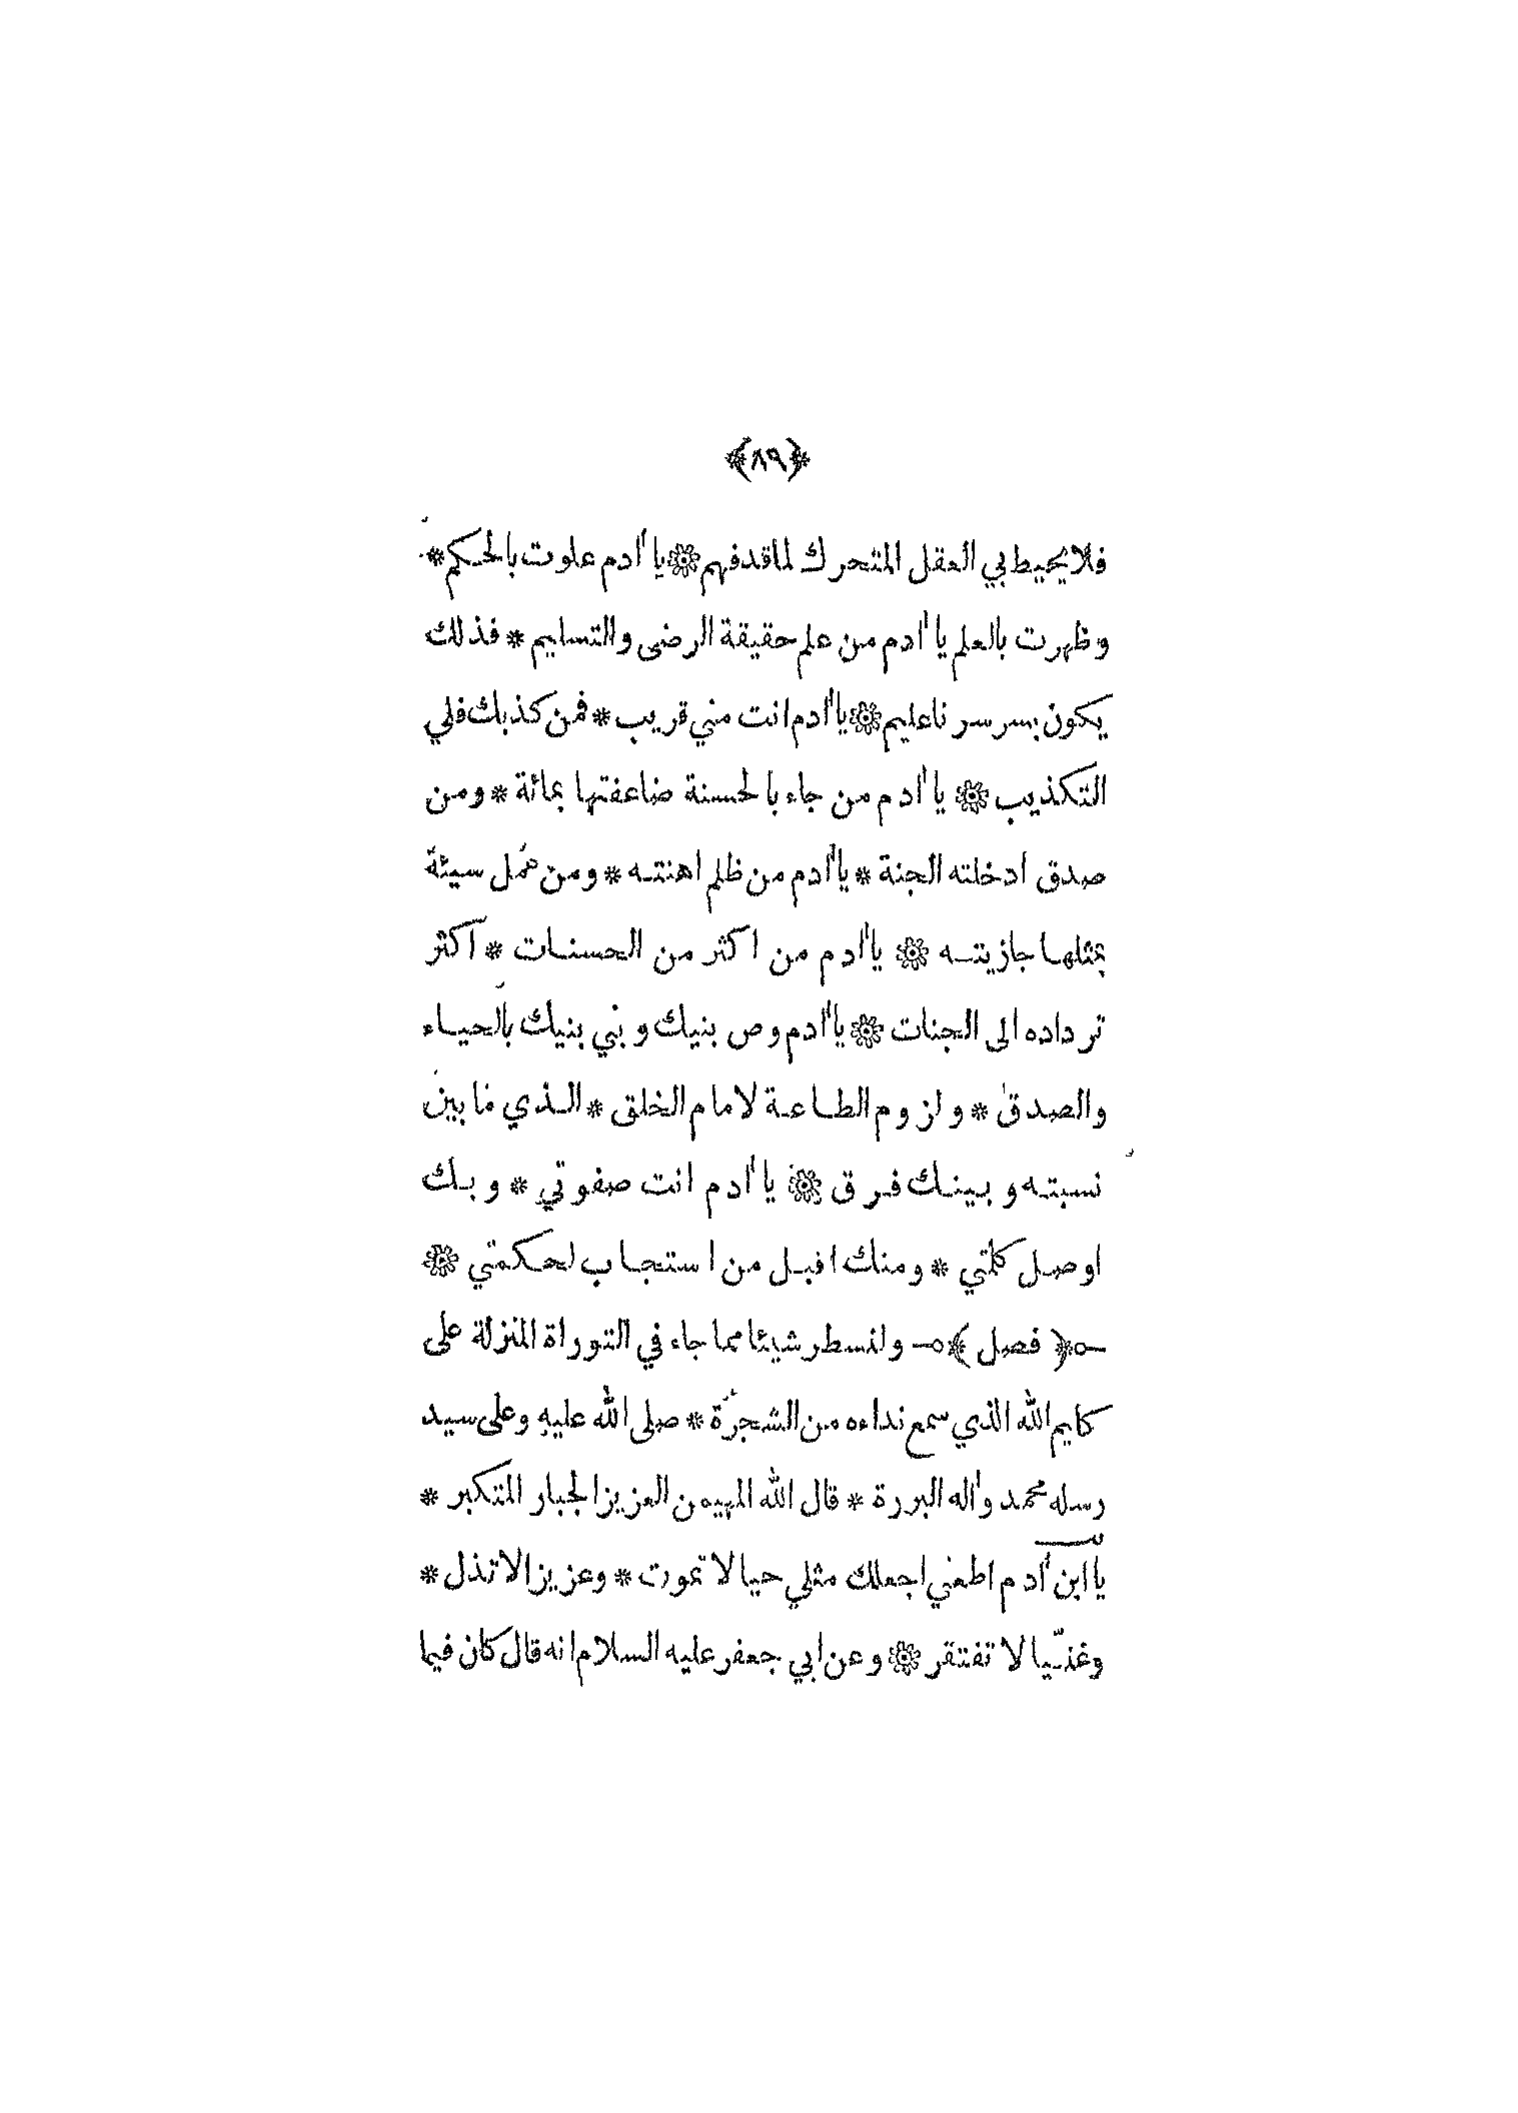 ﴿٨٩﴾
فلا يحيط بي العقل المتحرك لما قد فهم ۞ يا أدم علوت بالحكم *
وظهرت بالعلم يا أدم من علم حقيقة الرضى والتسليم * فذلك
يكون بسر سرنا عليم ۞ يا أدم انت مني قريب * فمن كذبك فلي
التكذيب ۞ يا أدم من جاء بالحسنة ضاعفتها بمائة * ومن
صدق ادخلته الجنة * يا أدم من ظلم اهنتـه * ومن عمل سيئة
بمثلهـا جازيتـه ۞ يا أدم من اكثر من الحسنـات * اكثر
ترداده الى الجنات ۞ يا أدم وص بنيك وبني بنيك بالحيـاء
والصدق * ولزوم الطـاعـة لامام الخلق * الـذي ما بين
نسبتـه وبينـك فرق ۞ يا أدم انت صفوتي * وبـك
اوصـل كلمتي * ومنك اقبـل من استجـاب لحكمتي ۞
﴿ فصل ﴾ ولنسطر شيئا مما جاء في التوراة المنزلة على
كليم الله الذي سمع نداءه من الشجرة * صلى الله عليه وعلى سيد
رسله محمد وأله البررة * قال الله المهيمن العزيز الجبار المتكبر *
يا ابن أدم اطعني اجعلك مثلي حيا لا تموت * وعزيزا لا تذل *
وغنـيّا لا تفتقر ۞ وعن ابي جعفر عليه السلام انه قال كان فيما